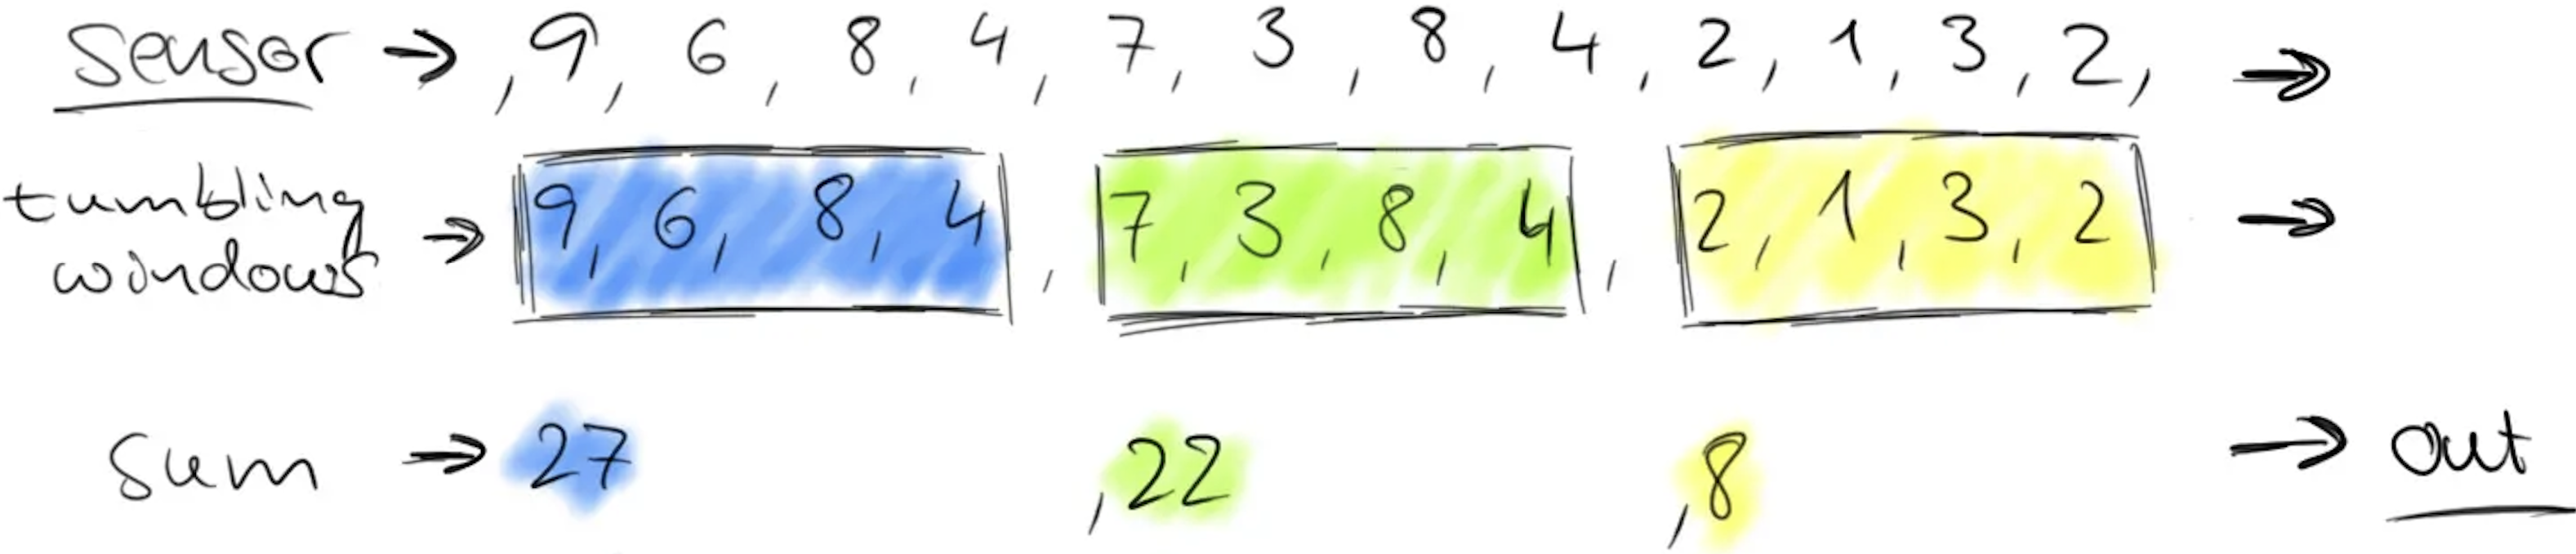 sensor → , 9, 6, 8, 4, 7, 3, 8, 4, 2, 1, 3, 2, →
tumbling
windows → 9, 6, 8, 4, 7, 3, 8, 4, 2, 1, 3, 2 →
sum → 27 , 22 , 8 → out